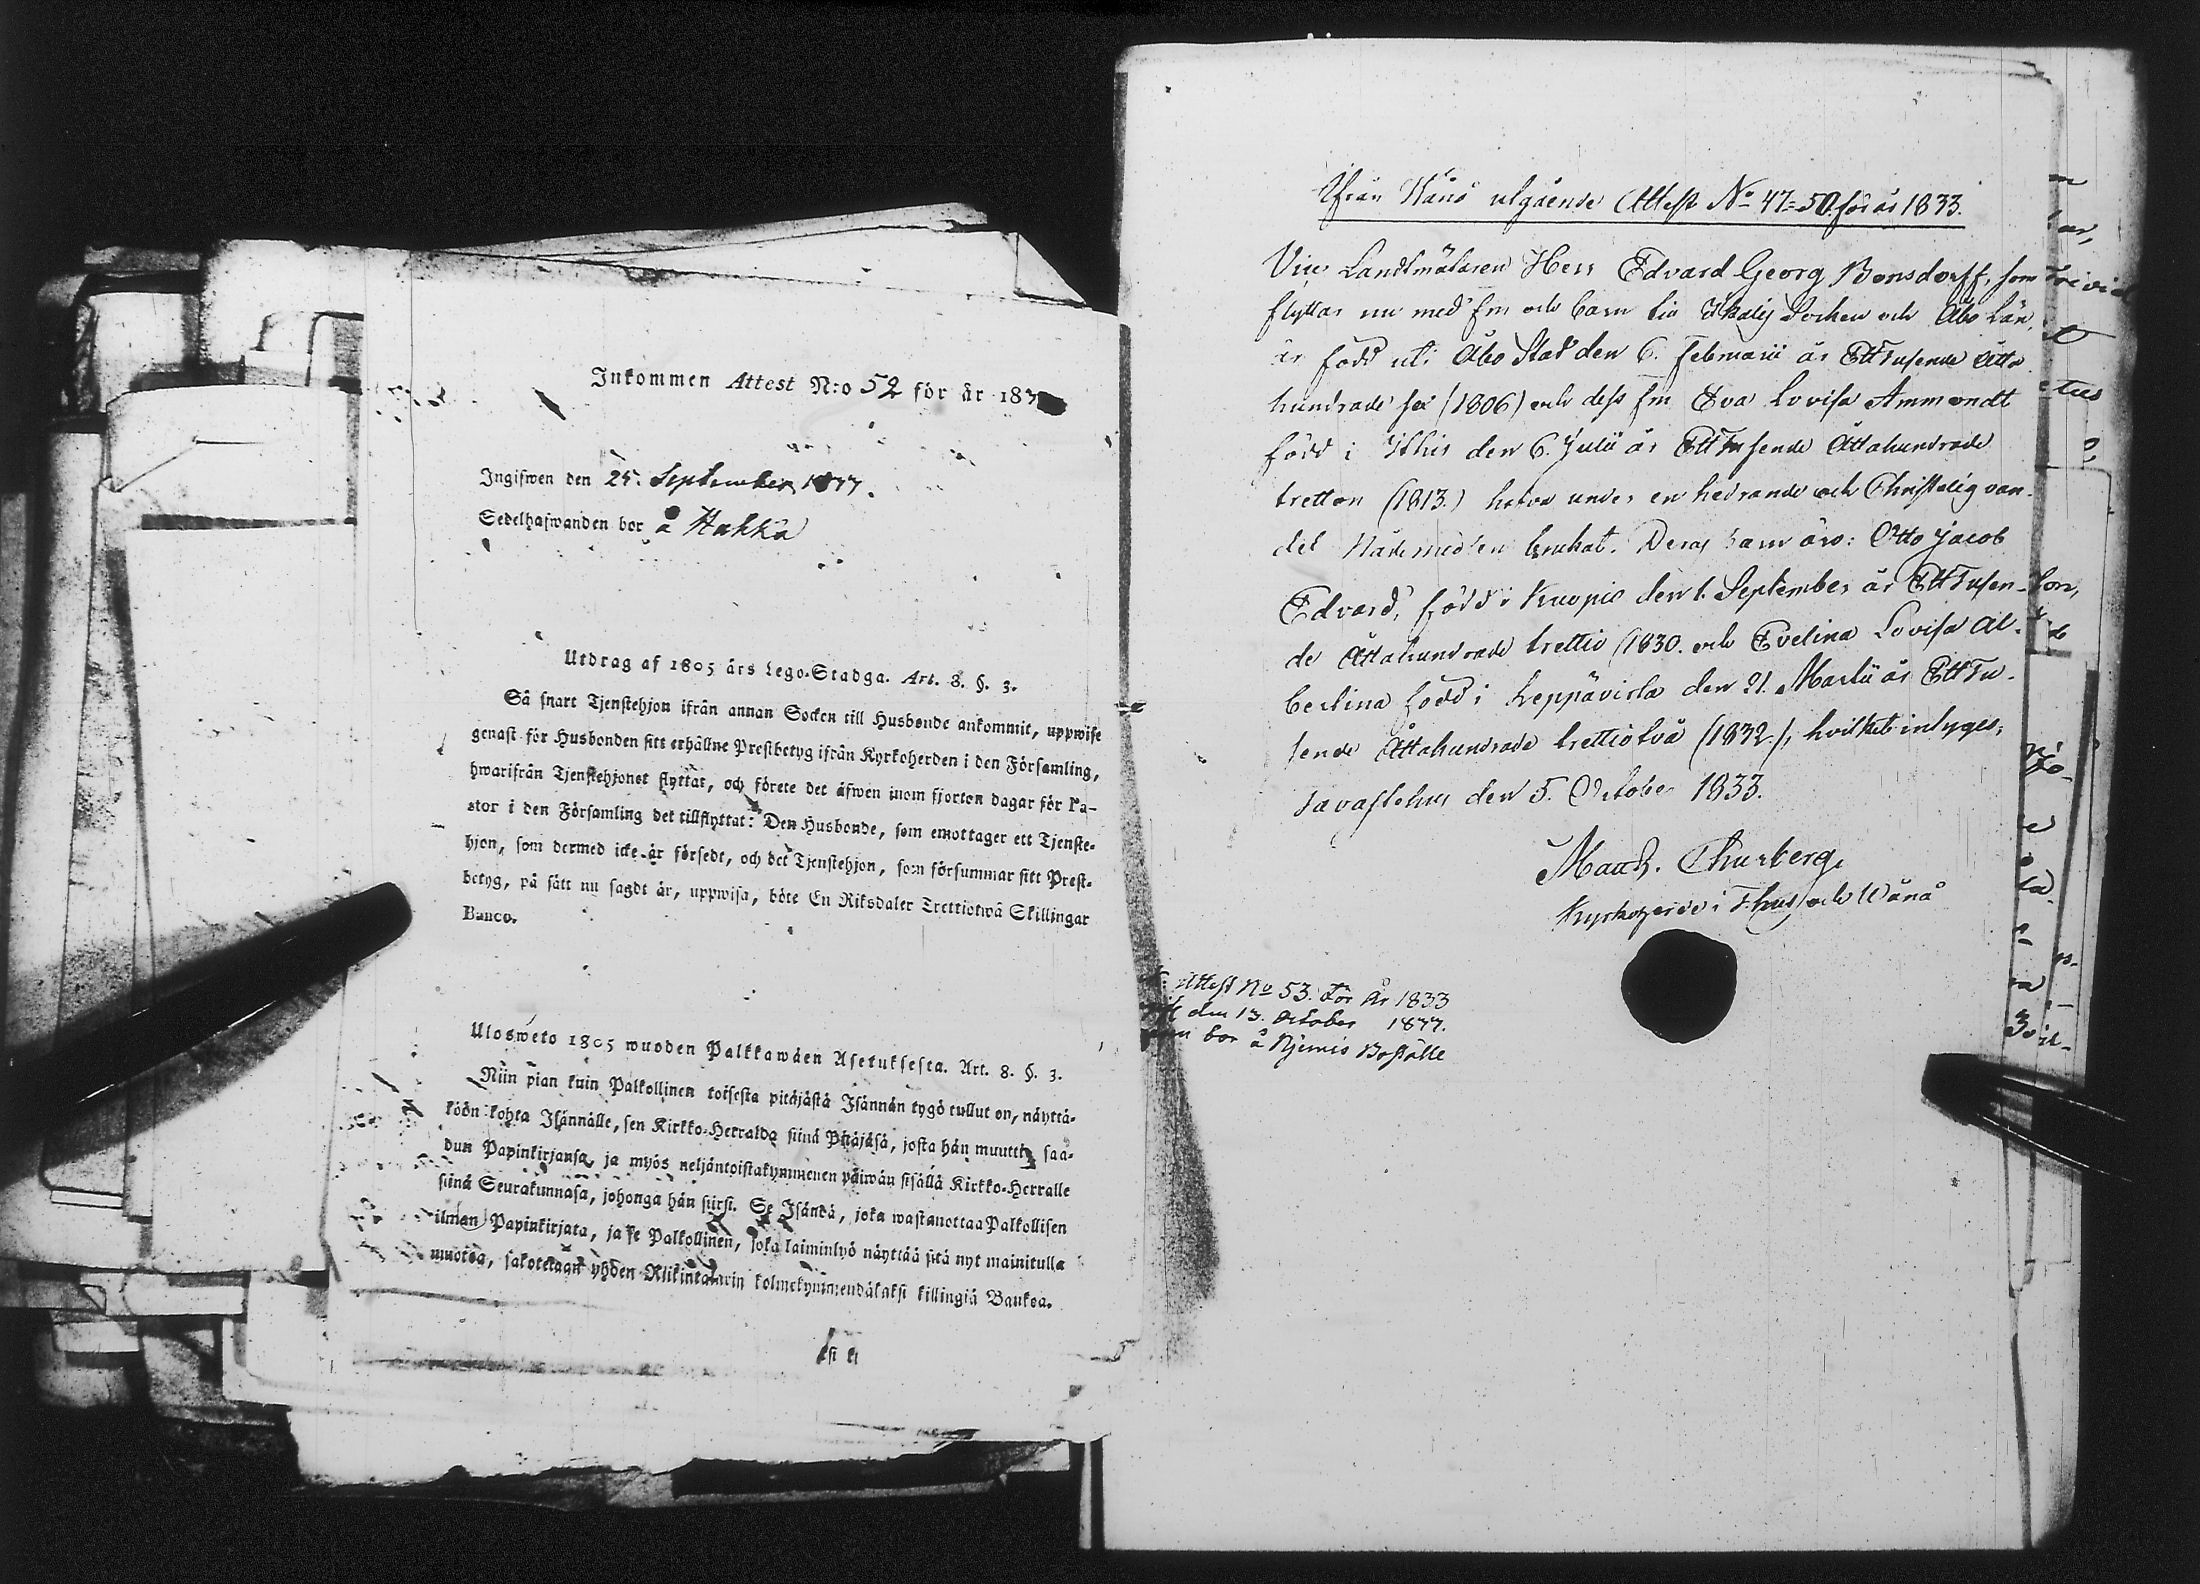 Inkommen Attest N:o 52 för år 183
Ingifwen den 25. September 1833.
Sedelhafwanden bor å Hakka
Utdrag af 1805 års Lego-Stadga. Art. 8. §. 3.
Så snart Tjenstehjon ifrån annan Socken till Husbonde ankommit, uppwise
genast för Husbonden sitt erhållne Prestbetyg ifrån Kyrkoherden i den Församling,
hwarifrån Tjenstehjonet flyttat, och förete det äfwen inom fjorton dagar för Pa-
stor i den Församling det tillflyttat: Den Husbonde, som emottager ett Tjenste-
hjon, som dermed icke är försedt, och det Tjenstehjon, som försummar sitt Prest-
betyg, på sätt nu sagdt är, uppwisa, böte En Riksdaler Trettiotwå Skillingar
Banco.
Ulosweto 1805 wuoden Palkkawäen Asetuksesta. Art. 8. §. 3.
Niin pian kuin Palkollinen toisesta pitäjästä Isännän tygö tullut on, näyttä-
köön kohta Isännälle, sen Kirkko-Herralda siinä Pitäjäsä, josta hän muutti, saa-
dun Papinkirjansa, ja myös neljäntoistakymmenen päiwän sisällä Kirkko-Herralle
siinä Seurakunnasa, johonga hän siirsi. Se Isändä, joka wastanottaa Palkollisen
ilman Papinkirjata, ja se Palkollinen, joka laiminlyö näyttää sitä nyt mainitulla
muotoa, sakotetaan yhden Riikintalarin kolmekymmendäkaksi killingiä Bankoa.
Ifrån Wånå utgående Attest No 47=50 för år 1833.
Vice Landtmätaren Herr Edvard Georg Bonsdorff, som
flyttar nu med fru och barn till Ikalis Socken och Åbo Län,
är född uti Åbo Stad den 6. Februarii år Ett Tusende Åtta
hundrade sex (1806) och dess fru Eva Lovisa Ammondt
född i Ithis den 6. Julii år Ett Tusende Åttahundrade
tretton (1813.) hafva under en hedrande och Christelig van-
del Nådemedlen brukat. Deras barn äro: Otto Jacob
Edvard, född i Kuopio den 1. September år Ett Tusen-
de Åttahundrade trettio (1830. och Evelina Lovisa Al-
bertina född i Leppävirta den 21. Martii år Ett Tu-
sende Åttahundrade trettiotvå (1832), hvilket intygas,
Tavastehus den 5. October 1833.
Churberg.
Kyrkoherde i T:hus och Wånå
Attest No 53. för År 1833
den 13. October 1833.
bor å Kjernis Boställe